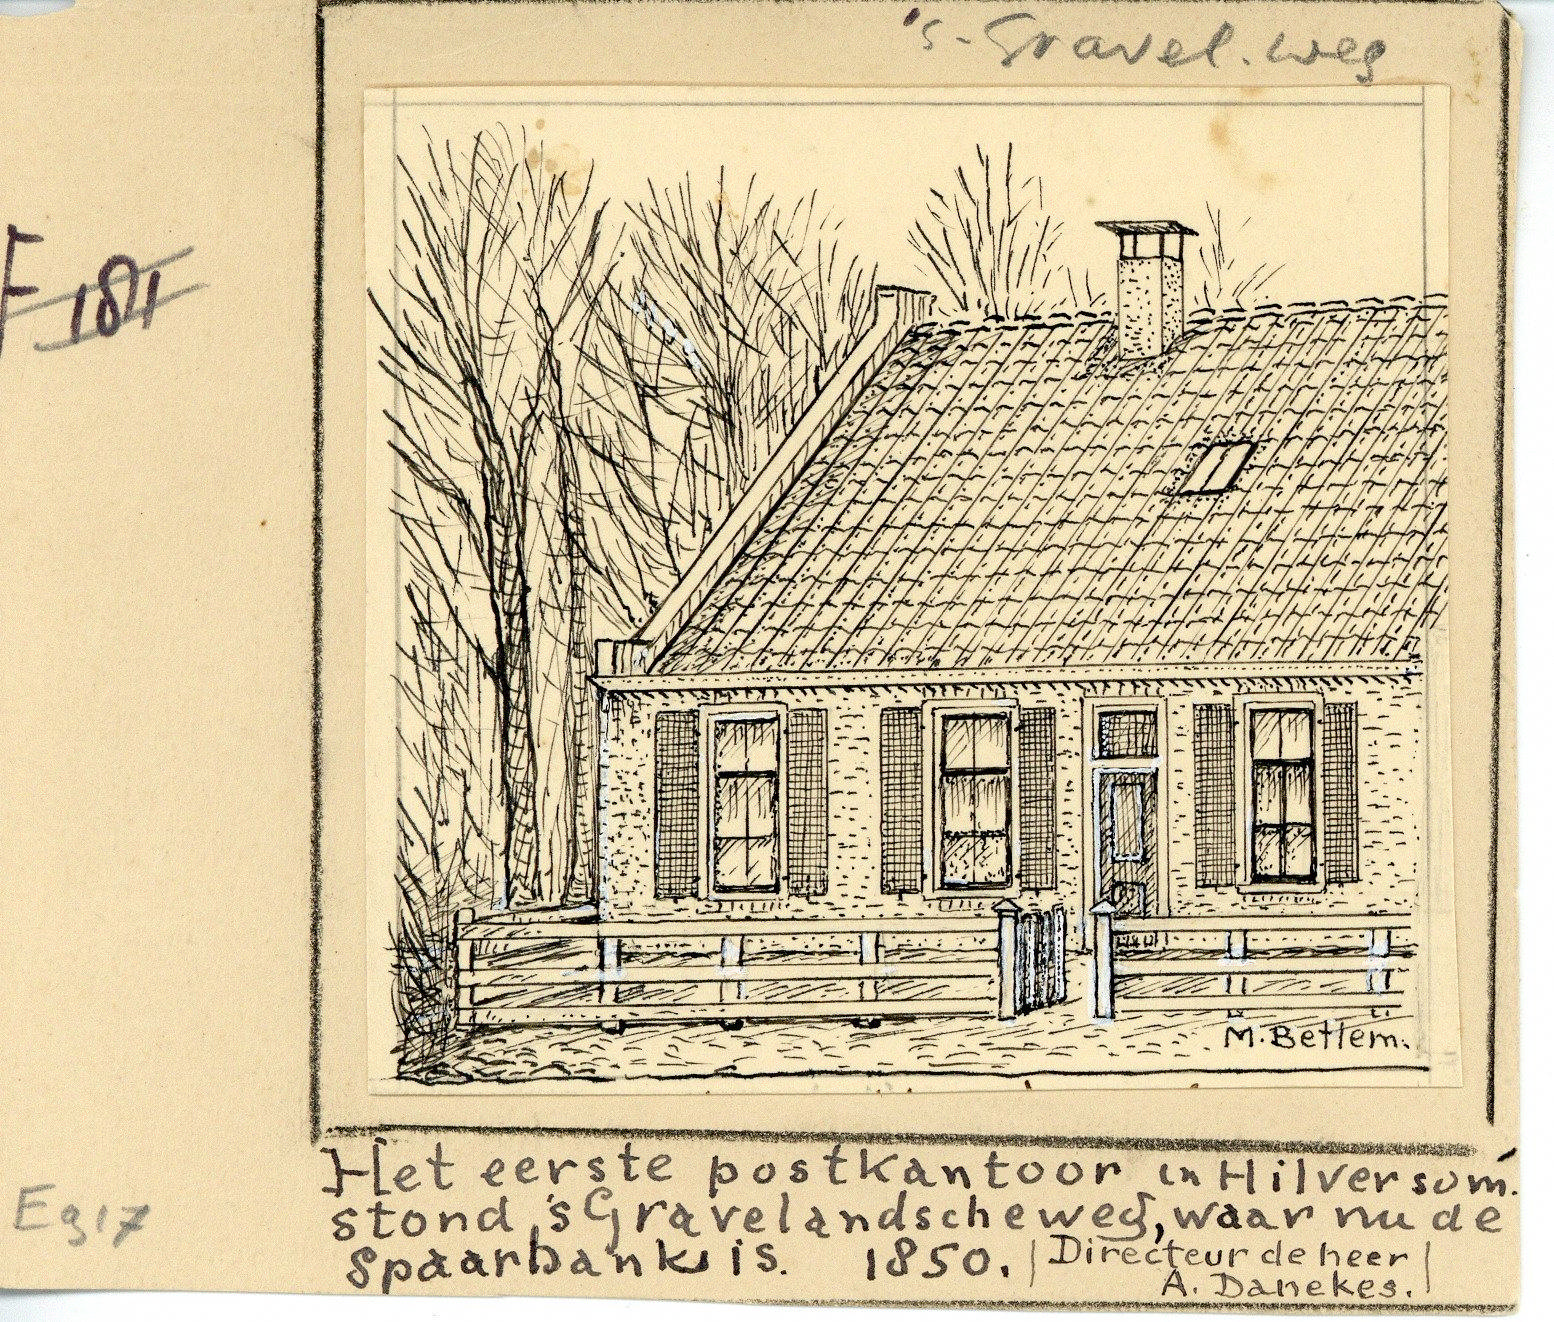 's-Gravel. weg
F 181
M. Betlem.
Het eerste postkantoor in Hilversum.
stond 's Gravelandscheweg, waar nu de
Spaarbank is. 1850. | Directeur de heer |
A. Danekes.
Eg17